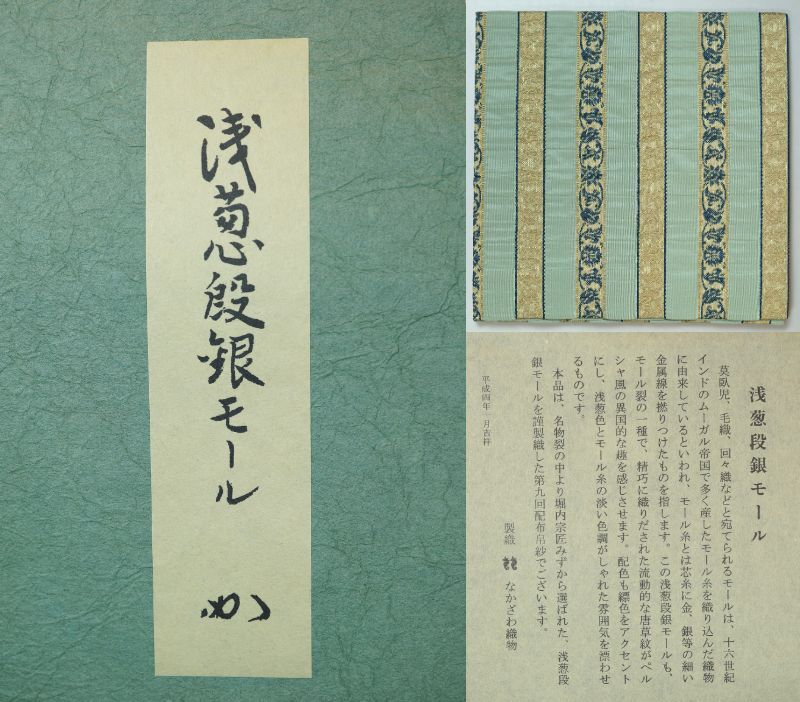 浅葱段銀モール
浅葱段銀モール
莫臥児、毛織、回々織などと宛てられるモールは、十六世紀
インドのムーガル帝国で多く産したモール糸を織り込んだ織物
に由来しているといわれ、モール糸とは芯糸に金、銀等の細い
金属線を撚りつけたものを指します。この浅葱段銀モールも、
モール裂の一種で、精巧に織りだされた流動的な唐草紋がペル
シャ風の異国的な趣を感じさせます。配色も縹色をアクセント
にし、浅葱色とモール糸の淡い色調がしゃれた雰囲気を漂わせ
るものです。
本品は、名物裂の中より堀内宗匠みずから選ばれた、浅葱段
銀モールを謹製織した第九回配布帛紗でございます。
製織 なかざわ織物
平成四年一月吉祥